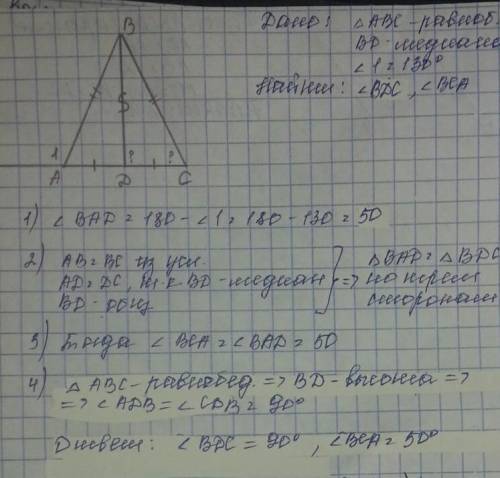 Дано: △ABC-равноб.
BD-медиана
∠1=130°
Найти: ∠BDC, ∠BCA
B
S
1
? ?
A D C
1) ∠BAD = 180 - ∠1 = 180 - 130 = 50
2) AB=BC из усл.
AD=DC, т.к. BD-медиан
BD-общ.
} => △BAD = △BDC
по трем
сторонам
3) Тогда ∠BCA = ∠BAD = 50
4) △ABC-равнобед. => BD-высота =>
=> ∠ADB = ∠CDB = 90°
Ответ: ∠BDC = 90°, ∠BCA = 50°